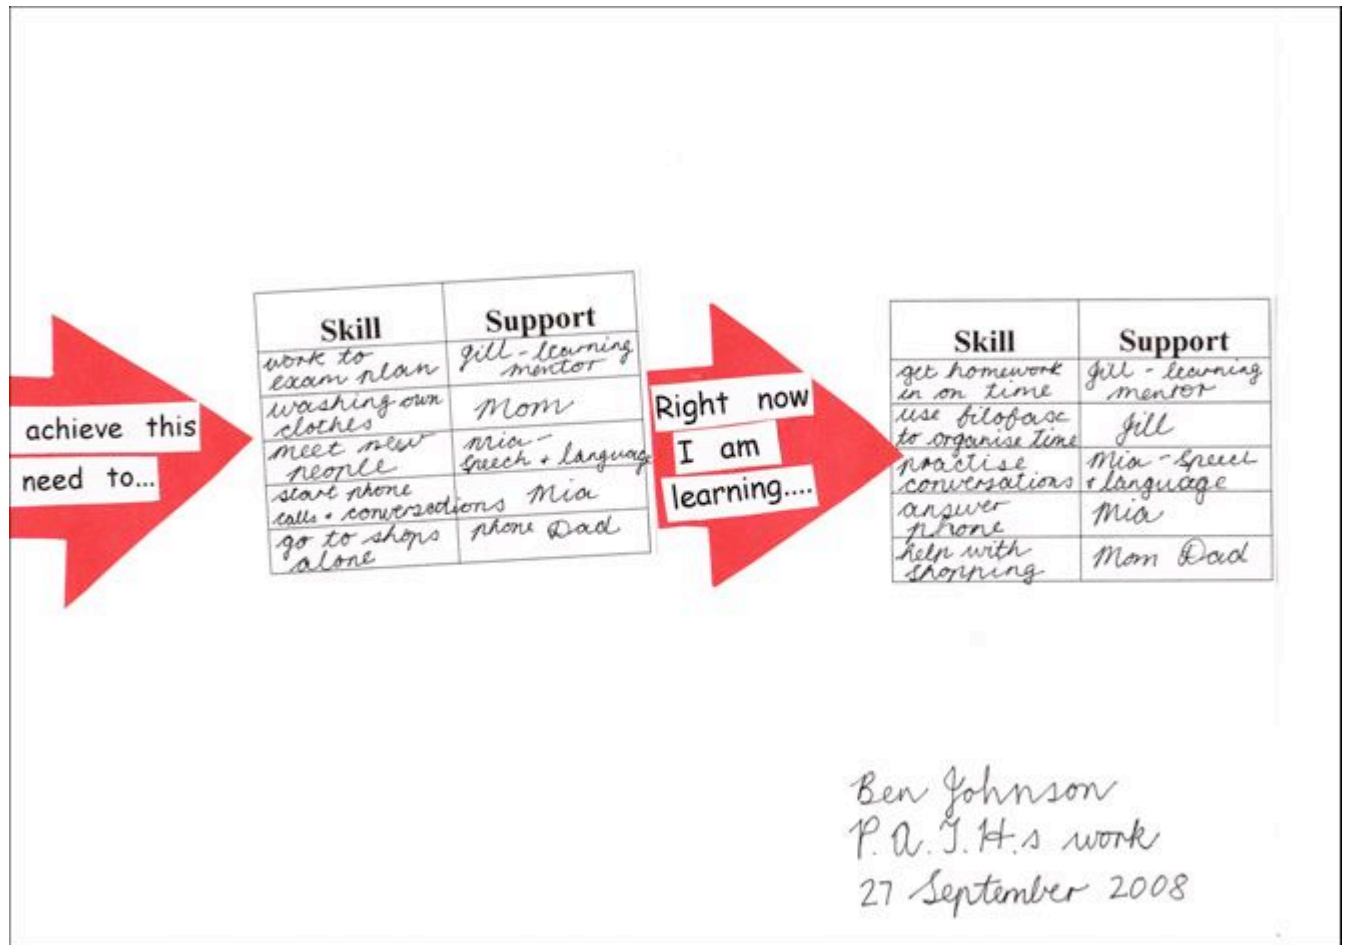 achieve this
need to...
Skill
Support
work to
exam plan
Gill - learning
mentor
washing own
clothes
Mom
meet new
people
Mia -
speech + language
start phone
calls + conversations
Mia
go to shops
alone
phone Dad
Right now
I am
learning....
Skill
Support
get homework
in on time
Gill - learning
mentor
use filofax
to organise time
Gill
practise
conversations
Mia - speech
+ language
answer
phone
Mia
help with
shopping
Mom Dad
Ben Johnson
P.A.T.H.s work
27 September 2008